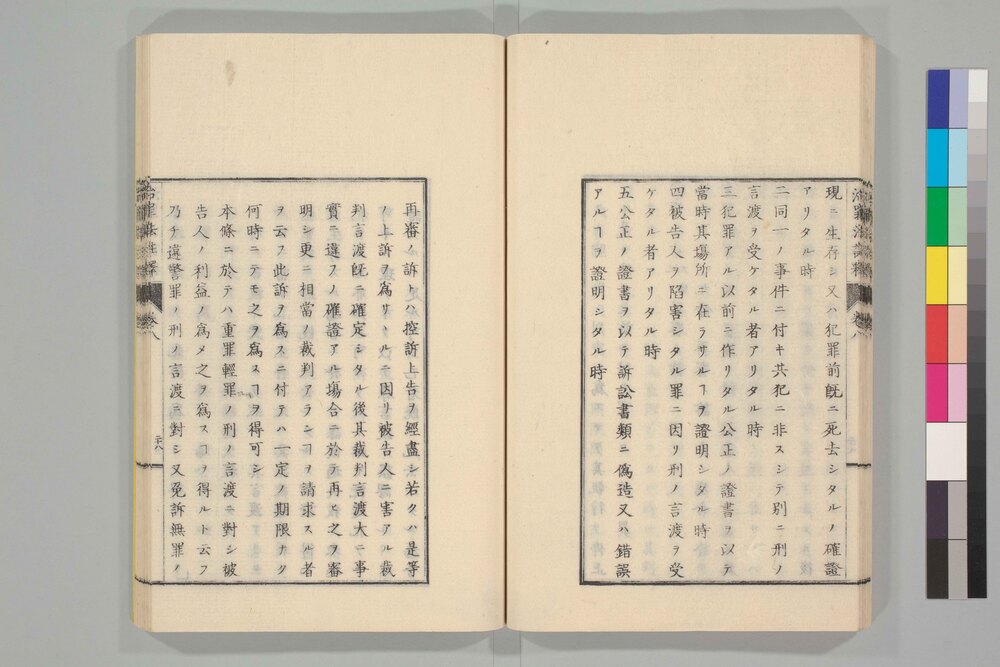 現ニ生存シ又ハ犯罪前旣ニ死去シタルノ確證
アリタル時
二同一ノ事件ニ付キ共犯ニ非スシテ別ニ刑ノ
言渡ヲ受ケタル者アリタル時
三犯罪アル以前ニ作リタル公正ノ證書ヲ以テ
當時其場所ニ在ラサルヿヲ證明シタル時
四被告人ヲ陷害シタル罪ニ因リ刑ノ言渡ヲ受
ケタル者アリタル時
五公正ノ證書ヲ以テ訴訟書類ニ僞造又ハ錯誤
アルヿヲ證明シタル時
治罪法註釋 卷八
再審ノ訴トハ控訴上告ヲ經盡シ若クハ是等
ノ上訴ヲ爲サヽルニ因リ被告人ニ害アル裁
判言渡旣ニ確定シタル後其裁判言渡大ニ事
實ニ違フノ確證アル塲合ニ於テ再ヒ之ヲ審
明シ更ニ相當ノ裁判アランヿヲ請求スル者
ヲ云フ此訴ヲ爲スニ付テハ一定ノ期限ナク
何時ニテモ之ヲ爲スヿヲ得可シ
本條ニ於テハ重罪輕罪ノ刑ノ言渡ニ對シ被
告人ノ利益ノ爲メ之ヲ爲スヿヲ得ルト云フ
乃チ違警罪ノ刑ノ言渡ニ對シ又免訴無罪ノ
治罪法註釋 卷八